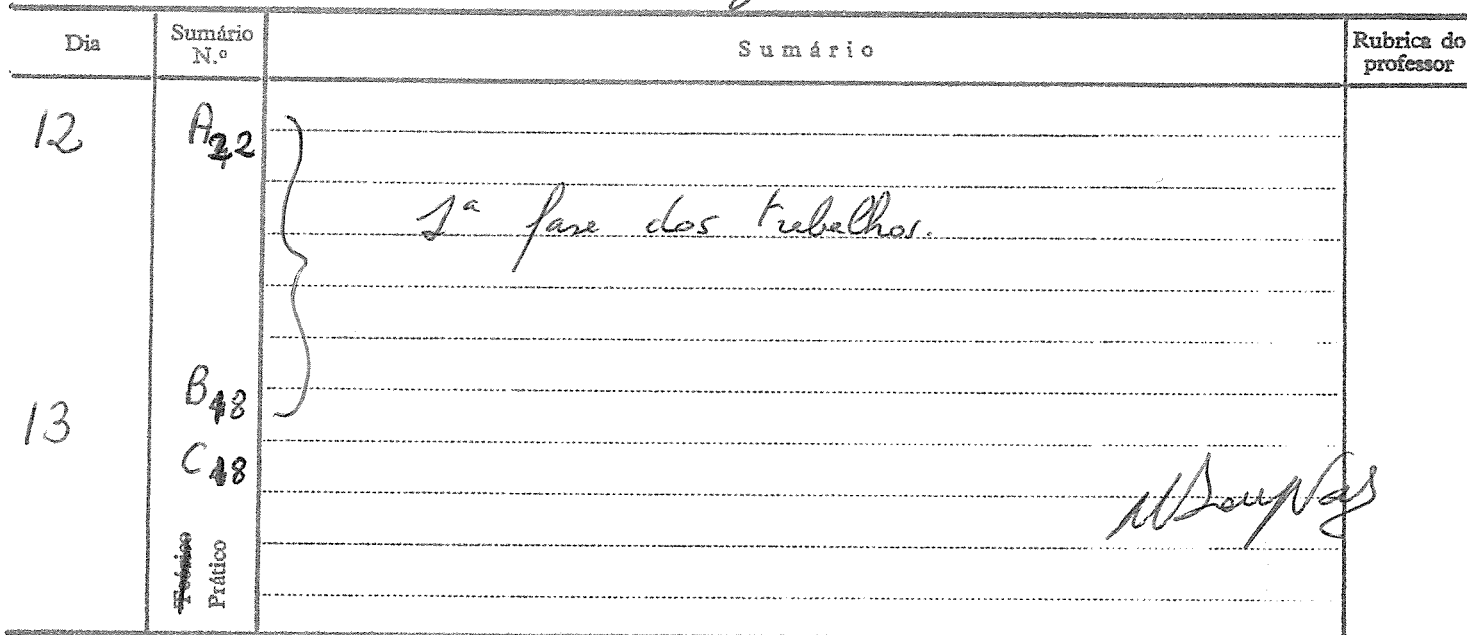 Dia Sumário N.º Sumário Rubrica do professor
12 A22
1ª fase dos trabalhos.
B18
13
C18
Teórico
Prático